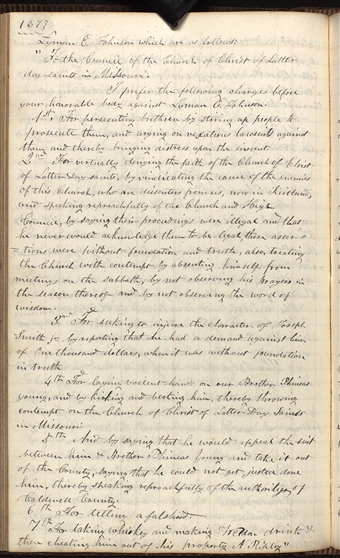 1873
Lyman E. Johnson which are as follows:
"To the Council of the Church of Christ of Latter
day saints in Missouri.
I prefer the following charges before
your honorable body against Lyman E. Johnson
1st For persecuting brethren by stiring up people to
prosecute them, and urging on vexatious lawsuits against
them, and thereby bringing distress upon the inocent.
2nd For virtually denying the faith of the Church of Christ
of Latter Day saints, by vindicating the cause of the enemies
of this Church, who are dissenters from us, now in Kirtland,
and speaking reproachfully of the Church and High
Council, by saying their proceedings were illegal and that
he never would acknowledge them to be legal, these asser-
=tions were without foundation and truth, also treating
the Church with contempt by absenting himself from
meetings on the sabbath, by not observing his prayers in
the season thereof and by not observing the word of
wisdom.
3rd For seeking to injure the character of Joseph
Smith jr by reporting that he had a demand against him
of one thousand dollars, when it was without foundation
in truth
4th For laying violent hands on our Brother Phineas
young, and by kicking and beating him, thereby throwing
contempt on the Church of Christ of Latter Day Saints
in Missouri
5th And by saying that he would appeal the suit
between him & Brother Phineas Young and take it out
of the County, saying that he could not get justice done
him, thereby speaking reproachfully of the authorities of
Caldwell County.
6th For telling a falsehood
7th For taking whiskey and making drink it
then cheating him out of his property. A. Ripley"